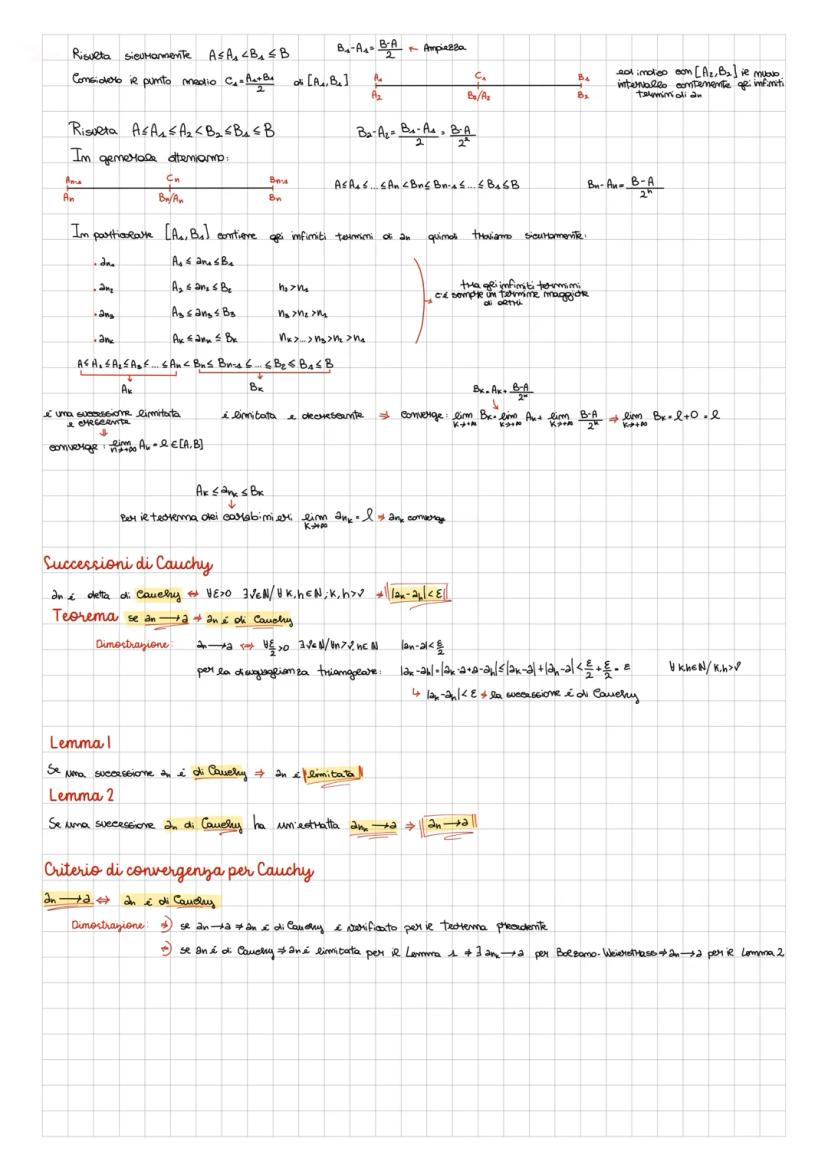 Risulta sicuramente A ≤ A₁ < B₁ ≤ B   B₁-A₁ = (B-A)/2 ← Ampiezza
Considero il punto medio C₁ = (A₁+B₁)/2 di [A₁,B₁]   A₁ C₁ B₁   ed indico con [A₂,B₂] il nuovo
A₂ B₂/A₂ B₂   intervallo contenente gli infiniti
termini di an
Risulta A ≤ A₁ ≤ A₂ < B₂ ≤ B₁ ≤ B   B₂-A₂ = (B₁-A₁)/2 = (B-A)/2²
In generale otteniamo:
An-1 Cn Bn-1   A ≤ A₁ ≤ ... ≤ An < Bn ≤ Bn-1 ≤ ... ≤ B₁ ≤ B   Bn-An = (B-A)/2ⁿ
An Bn/An Bn
In particolare [A₁,B₁] contiene gli infiniti termini di an quindi troviamo sicuramente:
• an₁ A₁ ≤ an₁ ≤ B₁
• an₂ A₂ ≤ an₂ ≤ B₂ n₂ > n₁   tra gli infiniti termini
c'è sempre un termine maggiore
di altri
• an₃ A₃ ≤ an₃ ≤ B₃ n₃ > n₂ > n₁
• ank Ak ≤ ank ≤ Bk nk > ... > n₃ > n₂ > n₁
A ≤ A₁ ≤ A₂ ≤ A₃ ≤ ... ≤ An < Bn ≤ Bn-1 ≤ ... ≤ B₂ ≤ B₁ ≤ B
Ak   Bk   Bk = Ak + (B-A)/2ᵏ
è una successione limitata   è limitata e decrescente ⇒ converge: lim k→+∞ Bk = lim k→+∞ Ak + lim k→+∞ (B-A)/2ᵏ ⇒ lim k→+∞ Bk = l + 0 = l
e crescente
⇓
converge: lim n→+∞ Ak = l ∈ [A,B]
Ak ≤ ank ≤ Bk
↓
Per il teorema dei carabinieri lim k→+∞ ank = l ⇒ ank converge
Successioni di Cauchy
an è detta di Cauchy ⇔ ∀ε>0 ∃ν∈N / ∀k,h∈N; k,h>ν ⇒ |ak-ah| < ε
Teorema se an → a ⇒ an è di Cauchy
Dimostrazione: an → a ⇔ ∀ε/2 >0 ∃ν∈N / ∀n>ν, n∈N |an-a| < ε/2
per la disuguaglianza triangolare: |ak-ah| = |ak-a+a-ah| ≤ |ak-a| + |ah-a| < ε/2 + ε/2 = ε ∀k,h∈N / k,h>ν
↳ |ak-ah| < ε ⇒ la successione è di Cauchy
Lemma 1
Se una successione an è di Cauchy ⇒ an è limitata
Lemma 2
Se una successione an di Cauchy ha un'estratta ank → a ⇒ an → a
Criterio di convergenza per Cauchy
an → a ⇔ an è di Cauchy
Dimostrazione: ⇒) se an → a ⇒ an è di Cauchy è verificato per il teorema precedente
⇐) se an è di Cauchy ⇒ an è limitata per il Lemma 1 ⇒ ∃ ank → a per Bolzano-Weierstrass ⇒ an → a per il Lemma 2